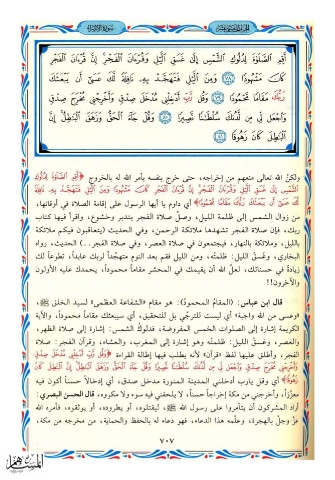 سورة الإسراء
أَقِمِ الصَّلَوٰةَ لِدُلُوكِ الشَّمْسِ إِلَىٰ غَسَقِ الَّيْلِ وَقُرْءَانَ الْفَجْرِ إِنَّ قُرْءَانَ الْفَجْرِ
كَانَ مَشْهُودًا ٧٨ وَمِنَ الَّيْلِ فَتَهَجَّدْ بِهِ نَافِلَةً لَّكَ عَسَىٰ أَن يَبْعَثَكَ
رَبُّكَ مَقَامًا مَّحْمُودًا ٧٩ وَقُل رَّبِّ أَدْخِلْنِي مُدْخَلَ صِدْقٍ وَأَخْرِجْنِي مُخْرَجَ صِدْقٍ
وَاجْعَل لِّي مِن لَّدُنكَ سُلْطَانًا نَّصِيرًا ٨٠ وَقُلْ جَاءَ الْحَقُّ وَزَهَقَ الْبَاطِلُ إِنَّ
الْبَاطِلَ كَانَ زَهُوقًا ٨١
ولكنَّ الله تعالى منعهم من إخراجه، حتى خرج بنفسه بأمر الله له بالخروج ﴿أَقِمِ الصَّلَوٰةَ لِدُلُوكِ
الشَّمْسِ إِلَىٰ غَسَقِ الَّيْلِ وَقُرْءَانَ الْفَجْرِ إِنَّ قُرْءَانَ الْفَجْرِ كَانَ مَشْهُودًا وَمِنَ الَّيْلِ فَتَهَجَّدْ بِهِ نَافِلَةً
لَّكَ عَسَىٰ أَن يَبْعَثَكَ رَبُّكَ مَقَامًا مَّحْمُودًا﴾ أي داوم يا أيها الرسول على إقامة الصلاة في أوقاتها،
من زوال الشمس إلى ظلمة الليل، وصلِّ صلاة الفجر بتدبر وخشوع، واقرأ فيها كتاب
ربك، فإن صلاة الفجر تشهدها ملائكة الرحمن، وفي الحديث (يتعاقبون فيكم ملائكة
بالليل، وملائكة بالنهار، فيجتمعون في صلاة العصر، وفي صلاة الفجر..) الحديث، رواه
البخاري، وغَسَقُ الليل: ظلمتُه، ومن الليل فقم بعد النوم متهجداً لربك عابداً، تطوعاً لك
زيادةً في حسناتك، لعلَّ الله أن يقيمك في المحشر مقاماً محموداً، يحمدك عليه الأولون
والآخرون!!
قال ابن عباس: (المقامُ المحمودُ): هو مقام «الشفاعة العظمى» لسيد الخلق ﷺ،
«وعسى من الله واجبة» أي ليست للترجِّي بل للتحقيق، أي سيبعثك مقاماً محموداً، والآية
الكريمة إشارة إلى الصلوات الخمس المفروضة، فدلوكُ الشمس: إشارة إلى صلاة الظهر،
والعصر، وغسق الليل: ظلمتُه وهو إشارة إلى المغرب، والعشاء، وقرآن الفجر: صلاة
الفجر، وأطلق عليها لفظ «قرآن» لأنه يطلب فيها إطالة القراءة ﴿وَقُل رَّبِّ أَدْخِلْنِي مُدْخَلَ صِدْقٍ
وَأَخْرِجْنِي مُخْرَجَ صِدْقٍ وَاجْعَل لِّي مِن لَّدُنكَ سُلْطَانًا نَّصِيرًا وَقُلْ جَاءَ الْحَقُّ وَزَهَقَ الْبَاطِلُ إِنَّ الْبَاطِلَ كَانَ
زَهُوقًا﴾ أي وقل يارب أدخلني المدينة المنورة مدخل صدق، أي إدخالاً حسناً أكون فيه
معزَّزاً، وأخرجني من مكة إخراجاً حسناً، لا يلحقني فيه سوء ولا مكروه. قال الحسن البصري:
أراد المشركون أن يتآمروا على رسول الله ﷺ، ليقتلوه، أو يطردوه، أو يوثقوه، فأمره الله
عزَّ وجلَّ بالهجرة، وعلَّمه هذا الدعاء، فهو دعاء له بالحفظ والحماية، من مخرجه من مكة،
٧٠٧